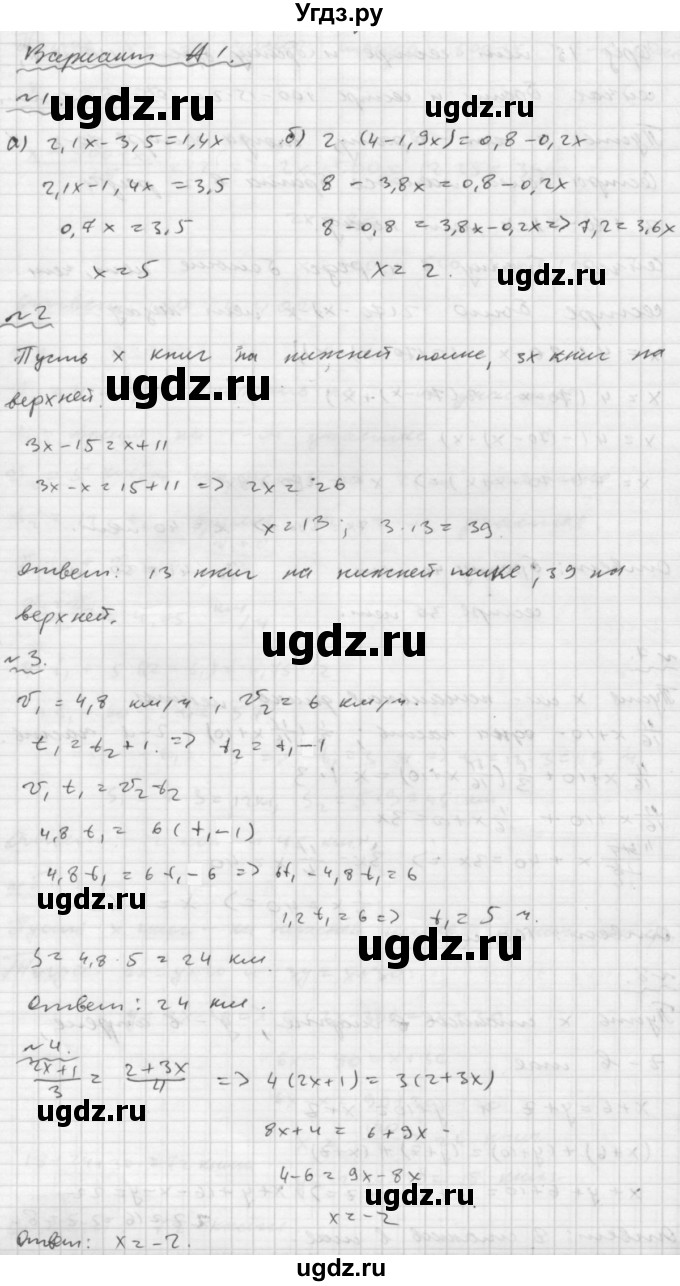 Угдз.ру
Вариант А1.
№1.
ugdz.ru
ugdz.ru
а) 2,1x-3,5=1,4x б) 2·(4-1,9x)=0,8-0,2x
2,1x-1,4x=3,5 8-3,8x=0,8-0,2x
0,7x=3,5 8-0,8=3,8x-0,2x=>7,2=3,6x
x=5 x=2.
ugdz.ru
№2
Пусть x книг на нижней полке, 3x книг на
верхней.
ugdz.ru
3x-15=x+11
3x-x=15+11 => 2x=26
x=13; 3·13=39.
ugdz.ru
Ответ: 13 книг на нижней полке; 39 на
верхней.
ugdz.ru
№3.
v₁=4,8 км/ч; v₂=6 км/ч.
t₁=t₂+1. => t₂=t₁-1
v₁t₁=v₂t₂
4,8t₁=6(t₁-1)
4,8t₁=6t₁-6 => 6t₁-4,8t₁=6
ugdz.ru
1,2t₁=6 => t₁=5 ч.
ugdz.ru
S=4,8·5=24 км
Ответ: 24 км.
№4.
(2x+1)/3=(2+3x)/4 => 4(2x+1)=3(2+3x)
ugdz.ru
8x+4=6+9x
4-6=9x-8x
ugdz.ru
x=-2
Ответ: x=-2.
ugdz.ru